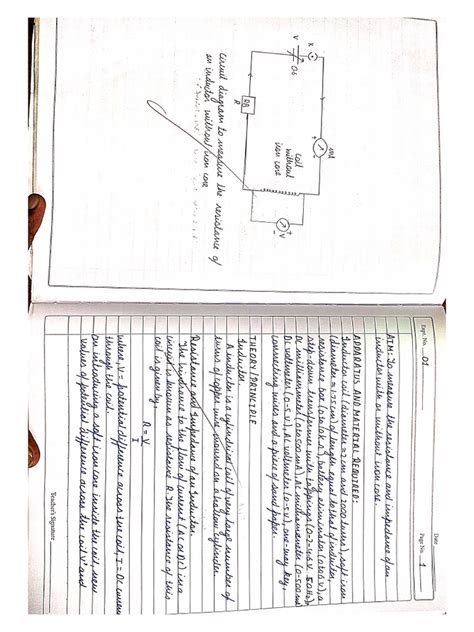 K
V
DS
mA
coil
without
iron core
RB
R
V
Circuit diagram to measure the resistance of
an inductor without iron core
Expt. No. 01
Date
Page No. 1
AIM: To measure the resistance and impedance of an
inductor with or without iron core.
APPARATUS AND MATERIAL REQUIRED:
Inductor coil (diameter ≈ 2 cm and 2000 turns), soft iron
(diameter ≈ 1.75 cm) of length equal to that of inductor,
resistance box (0 to 10k Ω), battery eliminator (0 to 6V), a
step-down transformer with tappings (0-2-4-6 V, 50 Hz)
DC milliammeter (0 to 500 mA), AC milliammeter (0-500 mA)
DC voltmeter (0-5 V), AC voltmeter (0-5 V), one-way key,
connecting wires and a piece of sand paper.
THEORY/PRINCIPLE
Inductor
A inductor is a cylindrical coil of very large number of
turns of copper wire wound on a hollow cylinder.
Resistance and Impedance of an Inductor.
The hindrance to the flow of current (AC or DC) in a
circuit is known as resistance R. The resistance of this
coil is given by,
R = V
I
where, V = potential difference across the coil, I = DC current
through the coil.
On introducing a soft iron core inside the coil, new
values of potential difference across the coil V' and
Teacher's Signature